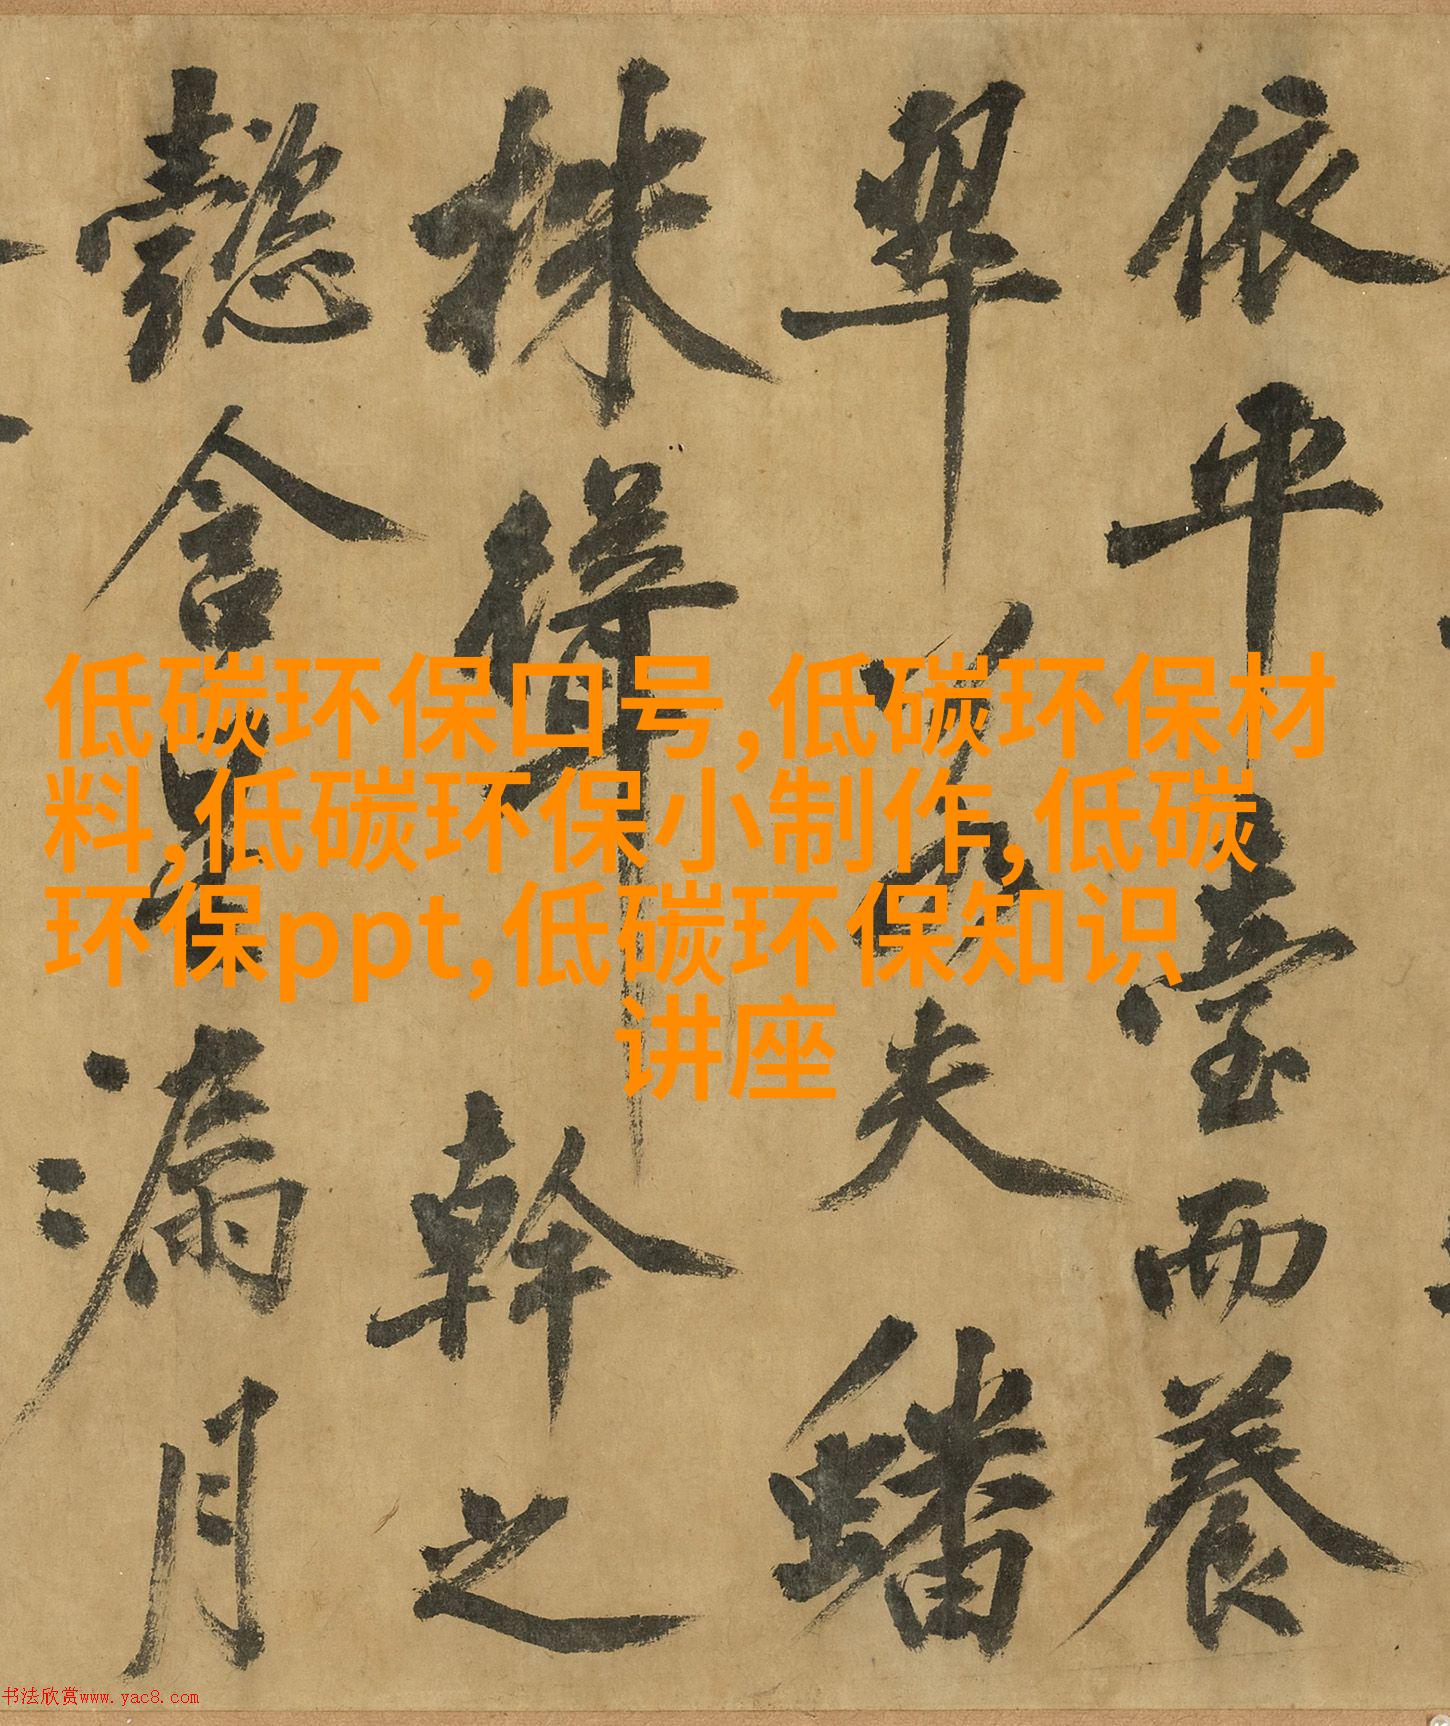 低碳环保口号,低碳环保材
料,低碳环保小制作,低碳
环保ppt,低碳环保知识
讲座
依平臺而養
翠夫蟠
株聳幹之
懿含星漏月
书法欣赏www.yac8.com